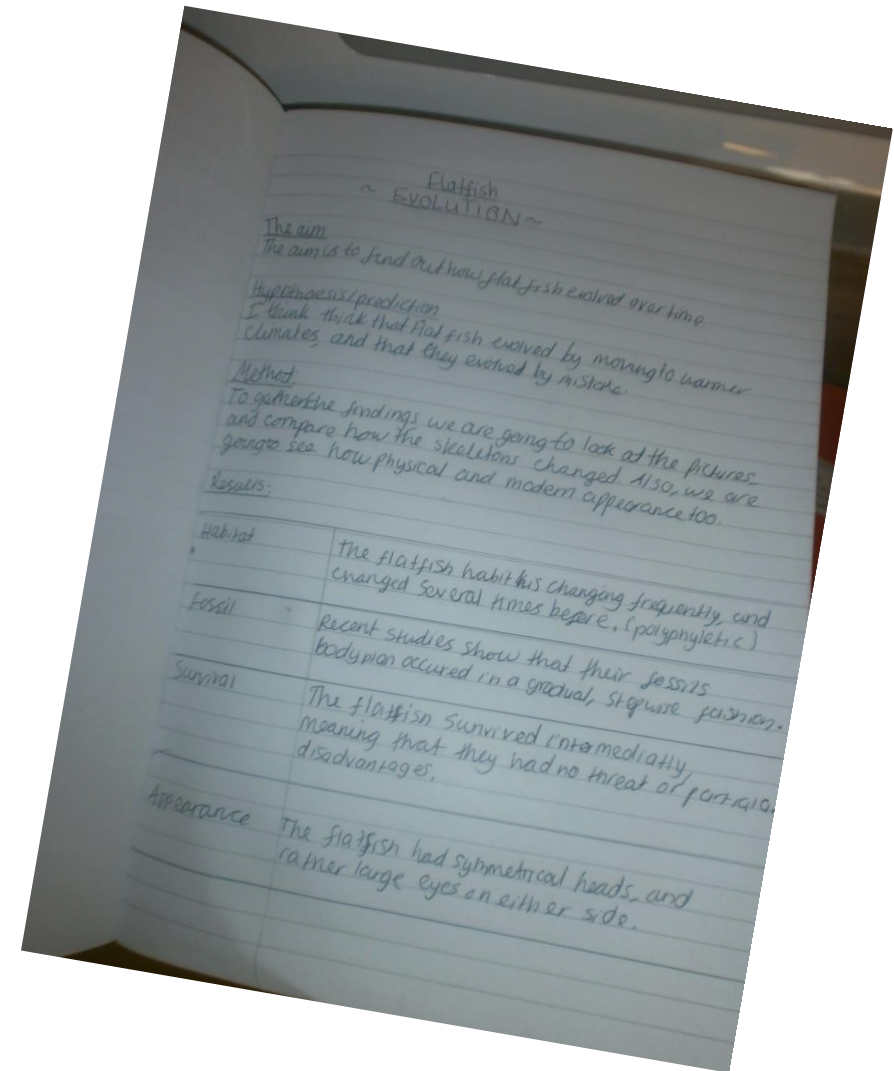 Flatfish
~ EVOLUTION ~
The aim
The aim is to find out how flat fish evolved over time.
Hypothaesis/prediction
I think think that flat fish evolved by moving to warmer
climates, and that they evolved by mistake.
Method:
To gather the findings, we are going to look at the pictures,
and compare how the skeletons changed. Also, we are
going to see how physical and modern appearance too.
Results:
Habitat
The flatfish habit his changing frequently, and
changed several times before. (polyphyletic)
Fossil
Recent studies show that their fossils
body plan occured in a gradual, stepwise fashion.
Survival
The flatfish survived intermediatly,
meaning that they had no threat or partial a.
disadvantages.
Appearance
The flatfish had symmetrical heads, and
rather large eyes on either side.